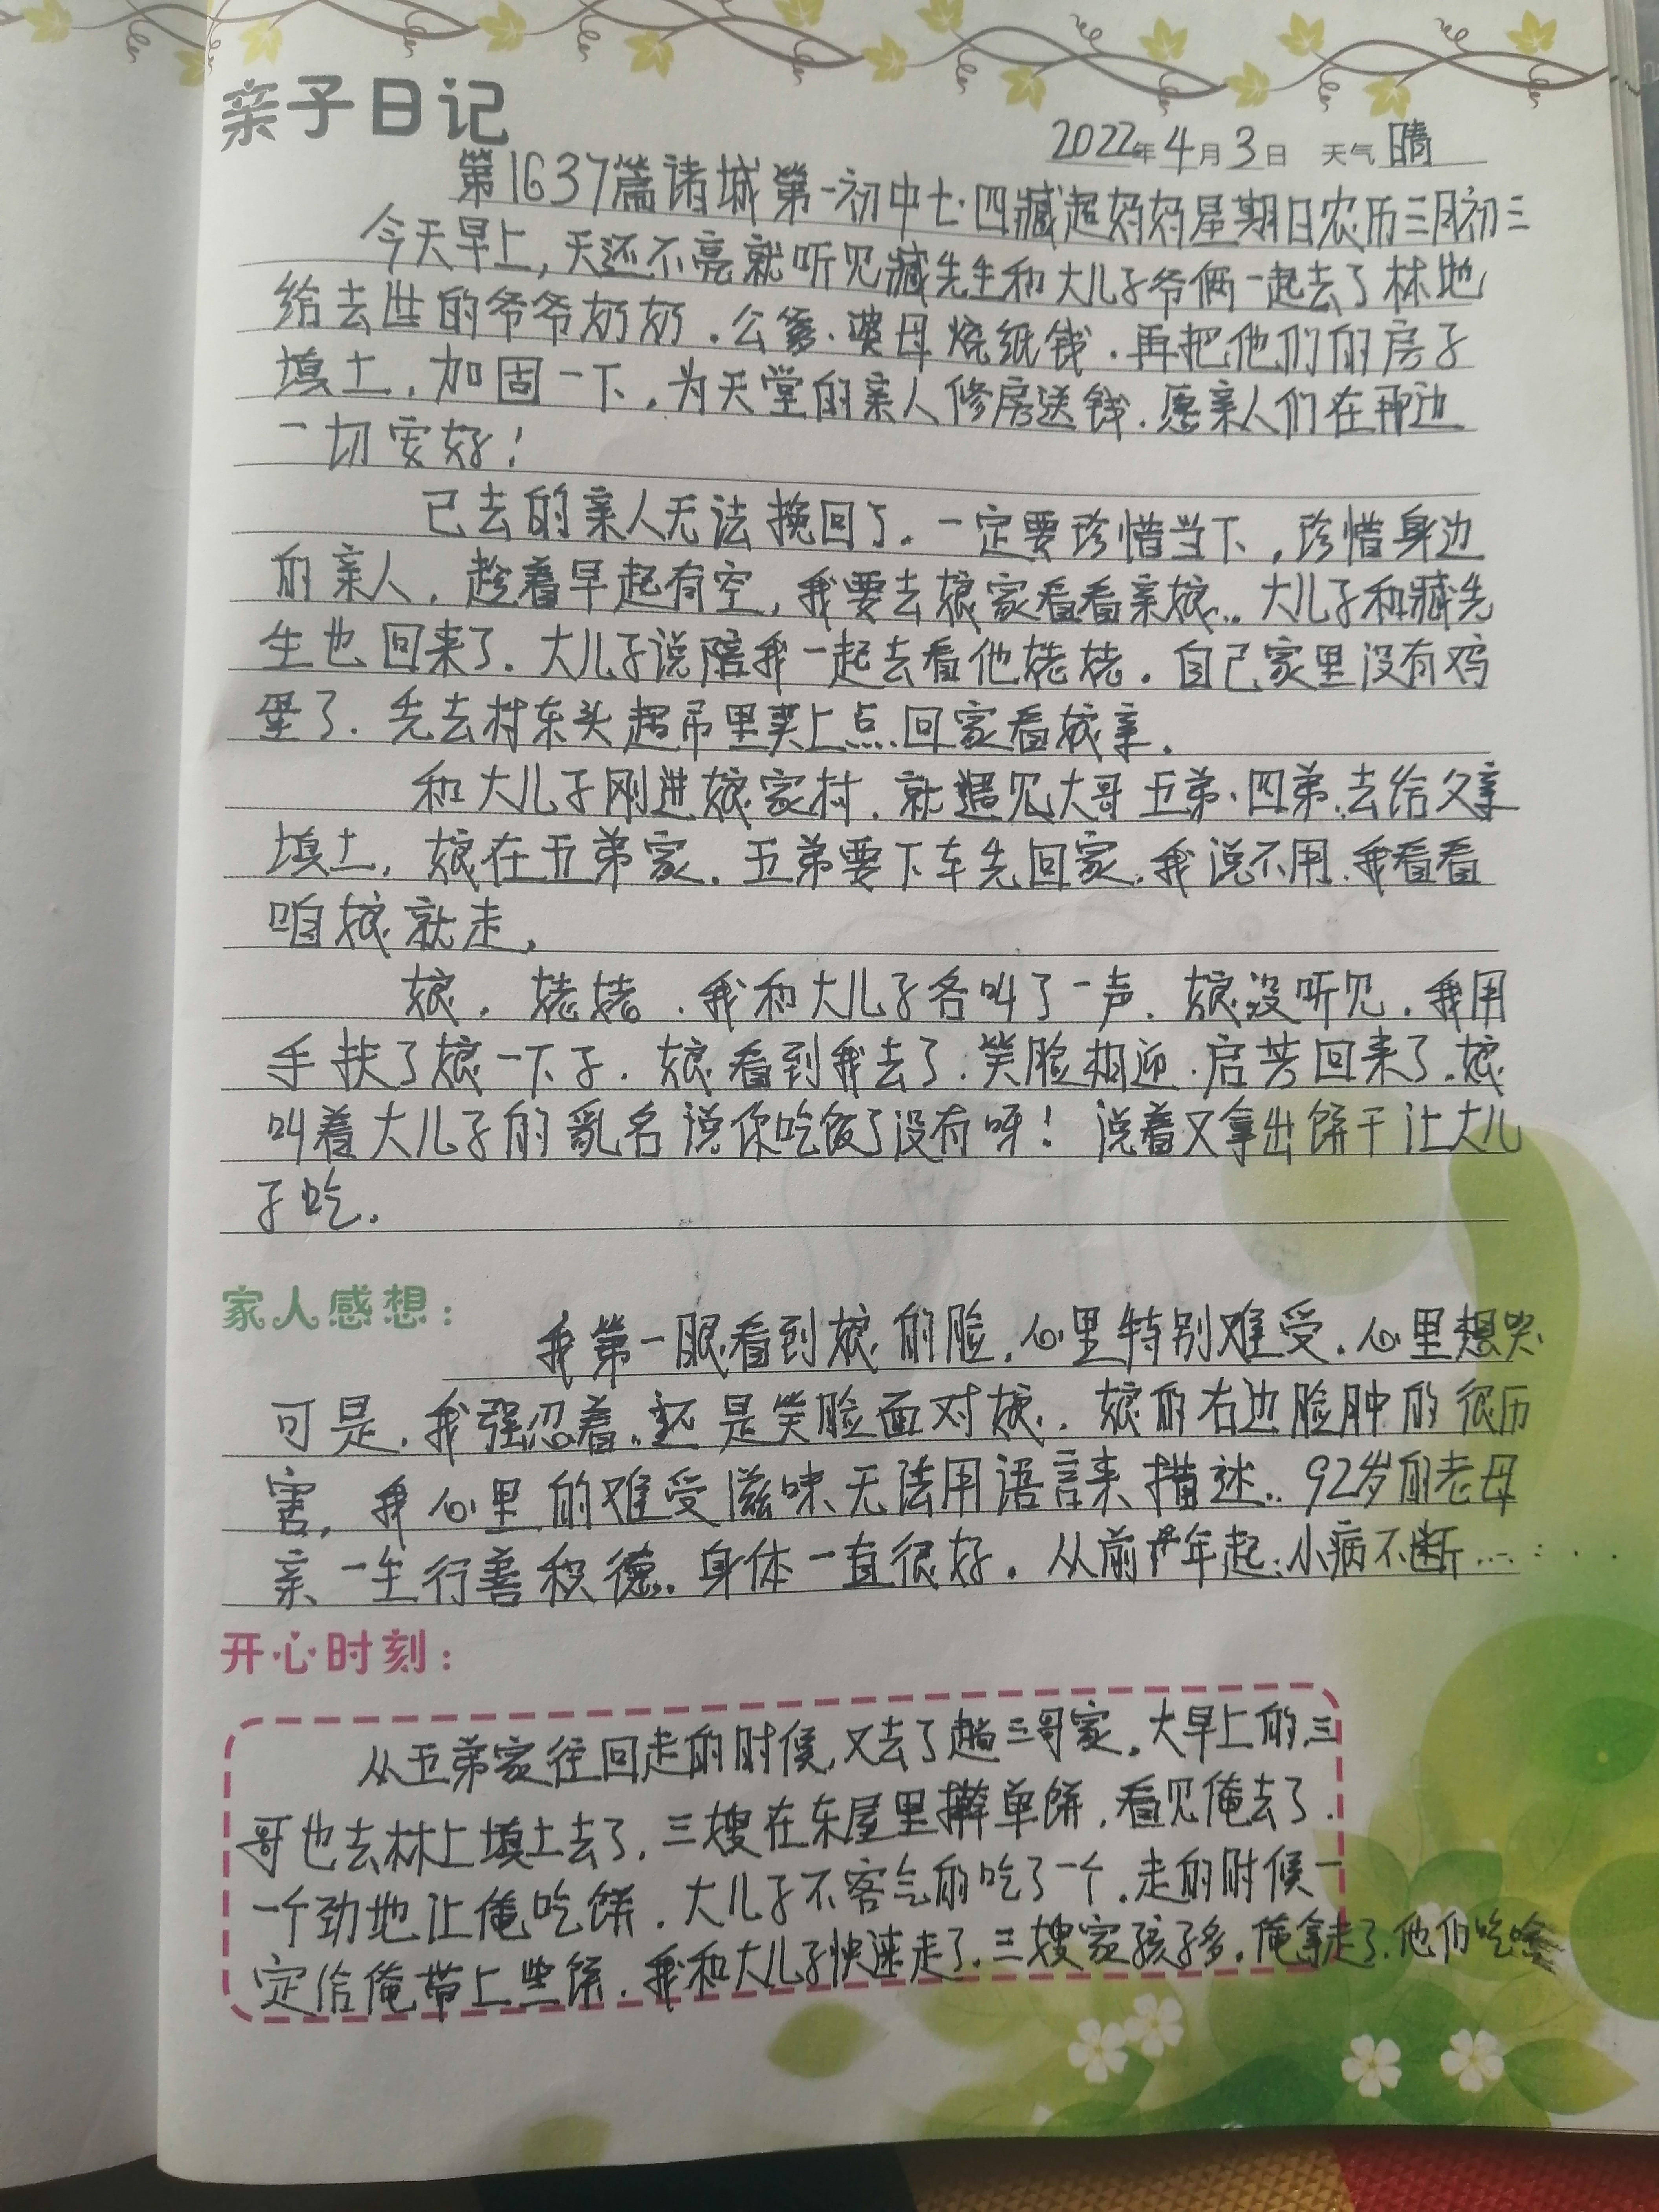 亲子日记
2022年4月3日 天气 晴
第1637篇诸城第一初中七·四臧超妈妈星期日农历三月初三
今天早上,天还不亮就听见臧先生和大儿子爷俩一起去了林地
给去世的爷爷奶奶.公爹.婆母烧纸钱.再把他们的房子
填土,加固一下,为天堂的亲人修房送钱.愿亲人们在那边
一切安好!
已去的亲人无法挽回了.一定要珍惜当下,珍惜身边
的亲人,趁着早起有空,我要去娘家看看亲娘..大儿子和臧先
生也回来了.大儿子说陪我一起去看他姥姥.自己家里没有鸡
蛋了.先去村东头超市里买上点.回家看娘亲.
和大儿子刚进娘家村.就遇见大哥五弟.四弟.去给父亲
填土,娘在五弟家.五弟要下车先回家.我说不用.我看看
咱娘就走,
娘.姥姥.我和大儿子各叫了一声.娘没听见.我用
手扶了娘一下子.娘看到我去了.笑脸相迎.启芳回来了.娘
叫着大儿子的乳名说你吃饭了没有呀!说着又拿出饼干让大儿
子吃.
家人感想:
我第一眼看到娘的脸,心里特别难受.心里想哭.
可是.我强忍着.还是笑脸面对娘..娘的右边脸肿的很历
害,我心里的难受滋味无法用语言来描述..92岁的老母
亲一生行善积德..身体一直很好.从前年起.小病不断......
开心时刻:
从五弟家往回走的时候,又去了趟三哥家.大早上的.三
哥也去林上填土去了.三嫂在东屋里擀单饼.看见俺去了.
一个劲地让俺吃饼.大儿子不客气的吃了一个.走的时候一
定给俺带上些饼.我和大儿子快速走了.三嫂家孩子多.俺拿走了.他们吃啥